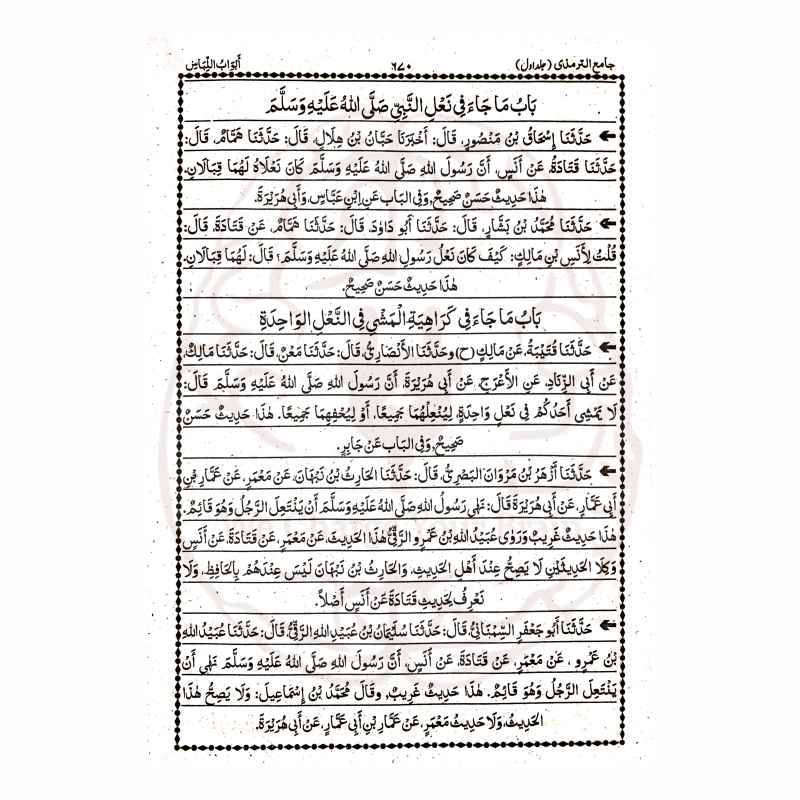 جامع الترمذی (جلد اول) ٦٧٠ أَبْوَابُ اللِّبَاسِ
بَابُ مَا جَاءَ فِي نَعْلِ النَّبِيِّ صَلَّى اللهُ عَلَيْهِ وَسَلَّمَ
حَدَّثَنَا إِسْحَاقُ بْنُ مَنْصُورٍ، قَالَ: أَخْبَرَنَا حَبَّانُ بْنُ هِلَالٍ، قَالَ: حَدَّثَنَا هَمَّامٌ، قَالَ:
حَدَّثَنَا قَتَادَةُ، عَنْ أَنَسٍ، أَنَّ رَسُولَ اللهِ صَلَّى اللهُ عَلَيْهِ وَسَلَّمَ كَانَ نَعْلَاهُ لَهُمَا قِبَالَانِ.
هٰذَا حَدِيثٌ حَسَنٌ صَحِيحٌ، وَفِي الْبَابِ عَنِ ابْنِ عَبَّاسٍ، وَأَبِي هُرَيْرَةَ.
حَدَّثَنَا مُحَمَّدُ بْنُ بَشَّارٍ، قَالَ: حَدَّثَنَا أَبُو دَاوُدَ، قَالَ: حَدَّثَنَا هَمَّامٌ، عَنْ قَتَادَةَ، قَالَ:
قُلْتُ لِأَنَسِ بْنِ مَالِكٍ: كَيْفَ كَانَ نَعْلُ رَسُولِ اللهِ صَلَّى اللهُ عَلَيْهِ وَسَلَّمَ؟ قَالَ: لَهُمَا قِبَالَانِ.
هٰذَا حَدِيثٌ حَسَنٌ صَحِيحٌ.
بَابُ مَا جَاءَ فِي كَرَاهِيَةِ الْمَشْيِ فِي النَّعْلِ الوَاحِدَةِ
حَدَّثَنَا قُتَيْبَةُ، عَنْ مَالِكٍ (ح) وحَدَّثَنَا الأَنْصَارِيُّ، قَالَ: حَدَّثَنَا مَعْنٌ، قَالَ: حَدَّثَنَا مَالِكٌ،
عَنْ أَبِي الزِّنَادِ، عَنِ الأَعْرَجِ، عَنْ أَبِي هُرَيْرَةَ، أَنَّ رَسُولَ اللهِ صَلَّى اللهُ عَلَيْهِ وَسَلَّمَ قَالَ:
لَا يَمْشِي أَحَدُكُمْ فِي نَعْلٍ وَاحِدَةٍ، لِيُنْعِلْهُمَا جَمِيعًا، أَوْ لِيُحْفِهِمَا جَمِيعًا. هٰذَا حَدِيثٌ حَسَنٌ
صَحِيحٌ، وَفِي البَابِ عَنْ جَابِرٍ.
حَدَّثَنَا أَزْهَرُ بْنُ مَرْوَانَ البَصْرِيُّ، قَالَ: حَدَّثَنَا الحَارِثُ بْنُ نَبْهَانَ، عَنْ مَعْمَرٍ، عَنْ عَمَّارِ بْنِ
أَبِي عَمَّارٍ، عَنْ أَبِي هُرَيْرَةَ قَالَ: نَهٰى رَسُولُ اللهِ صَلَّى اللهُ عَلَيْهِ وَسَلَّمَ أَنْ يَنْتَعِلَ الرَّجُلُ وَهُوَ قَائِمٌ.
هٰذَا حَدِيثٌ غَرِيبٌ وَرَوٰى عُبَيْدُ اللهِ بْنُ عَمْرٍو الرَّقِّيُّ هٰذَا الحَدِيثَ، عَنْ مَعْمَرٍ، عَنْ قَتَادَةَ، عَنْ أَنَسٍ
وَكِلَا الحَدِيثَيْنِ لَا يَصِحُّ عِنْدَ أَهْلِ الحَدِيثِ، وَالحَارِثُ بْنُ نَبْهَانَ لَيْسَ عِنْدَهُمْ بِالحَافِظِ، وَلَا
نَعْرِفُ لِحَدِيثِ قَتَادَةَ عَنْ أَنَسٍ أَصْلاً.
حَدَّثَنَا أَبُو جَعْفَرٍ السِّمْنَانِيُّ، قَالَ: حَدَّثَنَا سُلَيْمَانُ بْنُ عُبَيْدِ اللهِ الرَّقِّيُّ، قَالَ: حَدَّثَنَا عُبَيْدُ اللهِ
بْنُ عَمْرٍو، عَنْ مَعْمَرٍ، عَنْ قَتَادَةَ، عَنْ أَنَسٍ، أَنَّ رَسُولَ اللهِ صَلَّى اللهُ عَلَيْهِ وَسَلَّمَ نَهٰى أَنْ
يَنْتَعِلَ الرَّجُلُ وَهُوَ قَائِمٌ. هٰذَا حَدِيثٌ غَرِيبٌ، وقَالَ مُحَمَّدُ بْنُ إِسْمَاعِيلَ: وَلَا يَصِحُّ هٰذَا
الحَدِيثُ، وَلَا حَدِيثُ مَعْمَرٍ، عَنْ عَمَّارِ بْنِ أَبِي عَمَّارٍ، عَنْ أَبِي هُرَيْرَةَ.